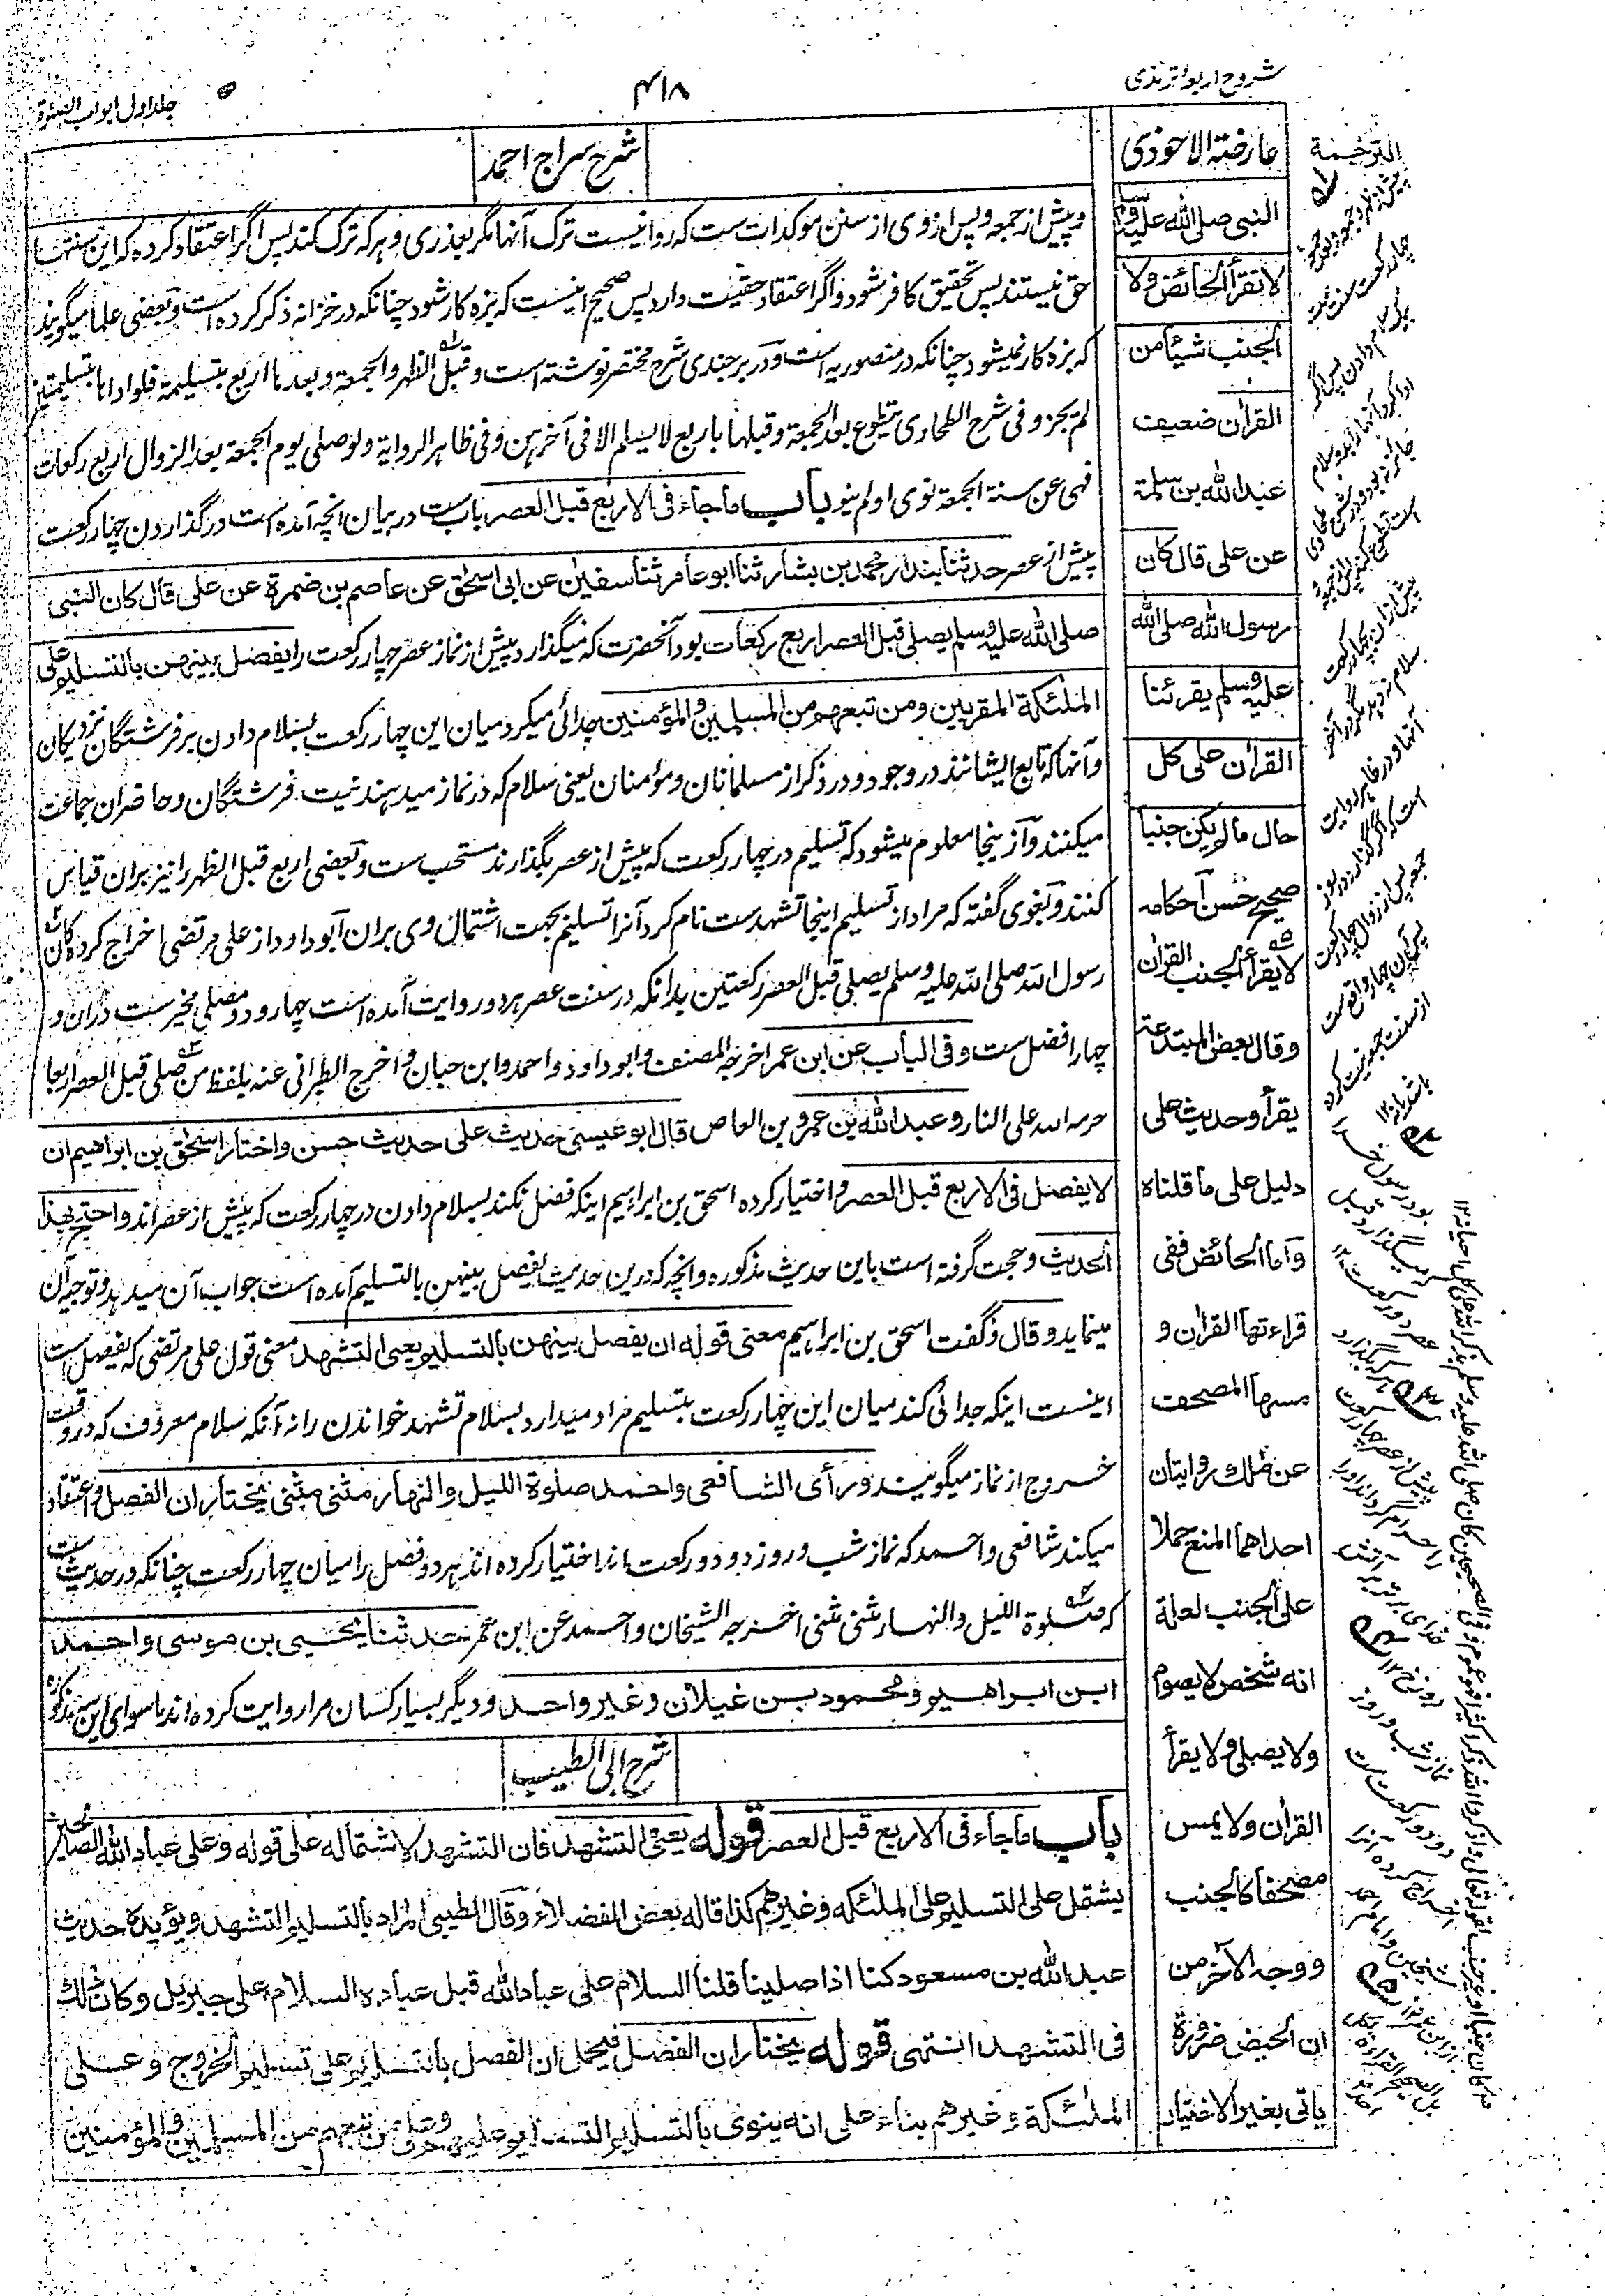 شروح اربعه ترمذی
۴۱۸
جلد اول ابواب الصلوة
عارضة الاحوذی
النبی صلی الله علیه وسلم
لا تقرأ الحائض ولا
الجنب شیئا من
القرآن ضعیف
عبد الله بن سلمة
عن علی قال کان
رسول الله صلی الله
علیه وسلم یقرئنا
القرآن علی کل
حال ما لم یکن جنبا
صحیح حسن احکامه
لا یقرأ الجنب القرآن
وقال بعض المبتدعة
یقرأ وحدیث علی
دلیل علی ما قلناه
واما الحائض ففی
قراءتها القرآن و
مسها المصحف
عن مالک روایتان
احداهما المنع حملا
علی الجنب لعلة
انه شخص لا یصوم
ولا یصلی ولا یقرأ
القرآن ولا یمس
مصحفا کالجنب
ووجه الآخر من
ان الحیض ضرورة
یاتی بغیر الاختیار
شرح سراج احمد
وپیش از جمعه وپس از وی از سنن موکدات ست که روا نیست ترک آنها مگر بعذری وهر که ترک کند پس اگر اعتقاد کرده که این سنتها
حق نیستند پس تحقیق کافر شود واگر اعتقاد حقیت دارد پس صحیح اینست که بزه کار شود چنانکه در خزانه ذکر کرده است وبعضی علما میگویند
که بزه کار نمیشود چنانکه در منصوریه است ودر برجندی شرح مختصر نوشته است وقبل الظهر والجمعة وبعدها اربع بتسلیمة فلو اداها بتسلیمتین
لم یجز وفی شرح الطحاوی یتطوع بعد الجمعة وقبلها باربع لا یسلم الا فی آخرهن وفی ظاهر الروایة ولو صلی یوم الجمعة بعد الزوال اربع رکعات
فهی عن سنة الجمعة نوی او لم ینو باب ما جاء فی الاربع قبل العصر باب ست در بیان انچه آمده است در گذاردن چهار رکعت
پیش از عصر حدثنا بندار محمد بن بشار ثنا ابو عامر ثنا سفین عن ابی اسحق عن عاصم بن ضمرة عن علی قال کان النبی
صلی الله علیه وسلم یصلی قبل العصر اربع رکعات بود آنحضرت که میگذارد پیش از نماز عصر چهار رکعت را یفصل بینهن بالتسلیم علی
الملئکة المقربین ومن تبعهم من المسلمین والمؤمنین جدائی میکرد میان این چهار رکعت بسلام دادن بر فرشتگان نزدیکان
وآنها که تابع ایشانند در وجود ودر ذکر از مسلمانان ومؤمنان یعنی سلام که در نماز میدهند نیت فرشتگان وحاضران جماعت
میکنند وازینجا معلوم میشود که تسلیم در چهار رکعت که پیش از عصر بگذارند مستحب ست وبعضی اربع قبل الظهر را نیز بران قیاس
کنند وبغوی گفته که مراد از تسلیم اینجا تشهد ست نام کرد آنرا تسلیم بجهت اشتمال وی بران ابوداود از علی مرتضی اخراج کرده کان
رسول الله صلی الله علیه وسلم یصلی قبل العصر رکعتین بدانکه در سنت عصر هر دو روایت آمده است چهار ودو ومصلی مخیر ست دران و
چهار افضل ست وفی الباب عن ابن عمر اخرجه المصنف وابوداود واحمد وابن حبان واخرج الطبرانی عنه بلفظ من صلی قبل العصر اربعا
حرمه الله علی النار وعبد الله بن عمرو بن العاص قال ابو عیسی حدیث علی حدیث حسن واختار اسحق بن ابراهیم ان
لا یفصل فی الاربع قبل العصر واختیار کرده اسحق بن ابراهیم اینکه فصل نکند بسلام دادن در چهار رکعت که پیش از عصر اند واحتج بهذا
الحدیث وحجت گرفته است باین حدیث مذکوره وانچه که درین حدیث یفصل بینهن بالتسلیم آمده است جواب آن میدهد وتوجیه آن
مینماید وقال وگفت اسحق بن ابراهیم معنی قوله ان یفصل بینهن بالتسلیم یعنی التشهد معنی قول علی مرتضی که یفصل است
اینست اینکه جدائی کند میان این چهار رکعت بتسلیم مراد میدارد بسلام تشهد خواندن را نه آنکه سلام معروف که در وقت
خروج از نماز میگویند ورأی الشافعی واحمد صلوة اللیل والنهار مثنی مثنی یختاران الفصل واعتقاد
میکند شافعی واحمد که نماز شب وروز دو دو رکعت اند اختیار کرده اند هر دو فصل را میان چهار رکعت چنانکه در حدیث ست
که صلوة اللیل والنهار مثنی مثنی اخرجه الشیخان واحمد عن ابن عمر حدثنا یحیی بن موسی واحمد
ابن ابراهیم ومحمود بن غیلان وغیر واحد ودیگر بسیار کسان مرا روایت کرده اند ماسوای این سه مذکوره
شرح ابی الطیب
باب ما جاء فی الاربع قبل العصر قوله یعنی التشهد فان التشهد لاشتماله علی قوله وعلی عباد الله الصالحین
یشتمل علی التسلیم علی الملئکة وغیرهم کذا قاله بعض الفضلاء وقال الطیبی المراد بالتسلیم التشهد ویؤیده حدیث
عبد الله بن مسعود کنا اذا صلینا قلنا السلام علی عباد الله قبل عباده السلام علی جبریل وکان ذلک
فی التشهد انتهی قوله یختاران الفصل فیحمل ان الفصل بالتسلیم علی تسلیم الخروج وعلی
الملئکة وغیرهم بناء علی انه ینوی بالتسلیم التسلیم علیهم وعلی من تبعهم من المسلمین والمؤمنین
الترجمة